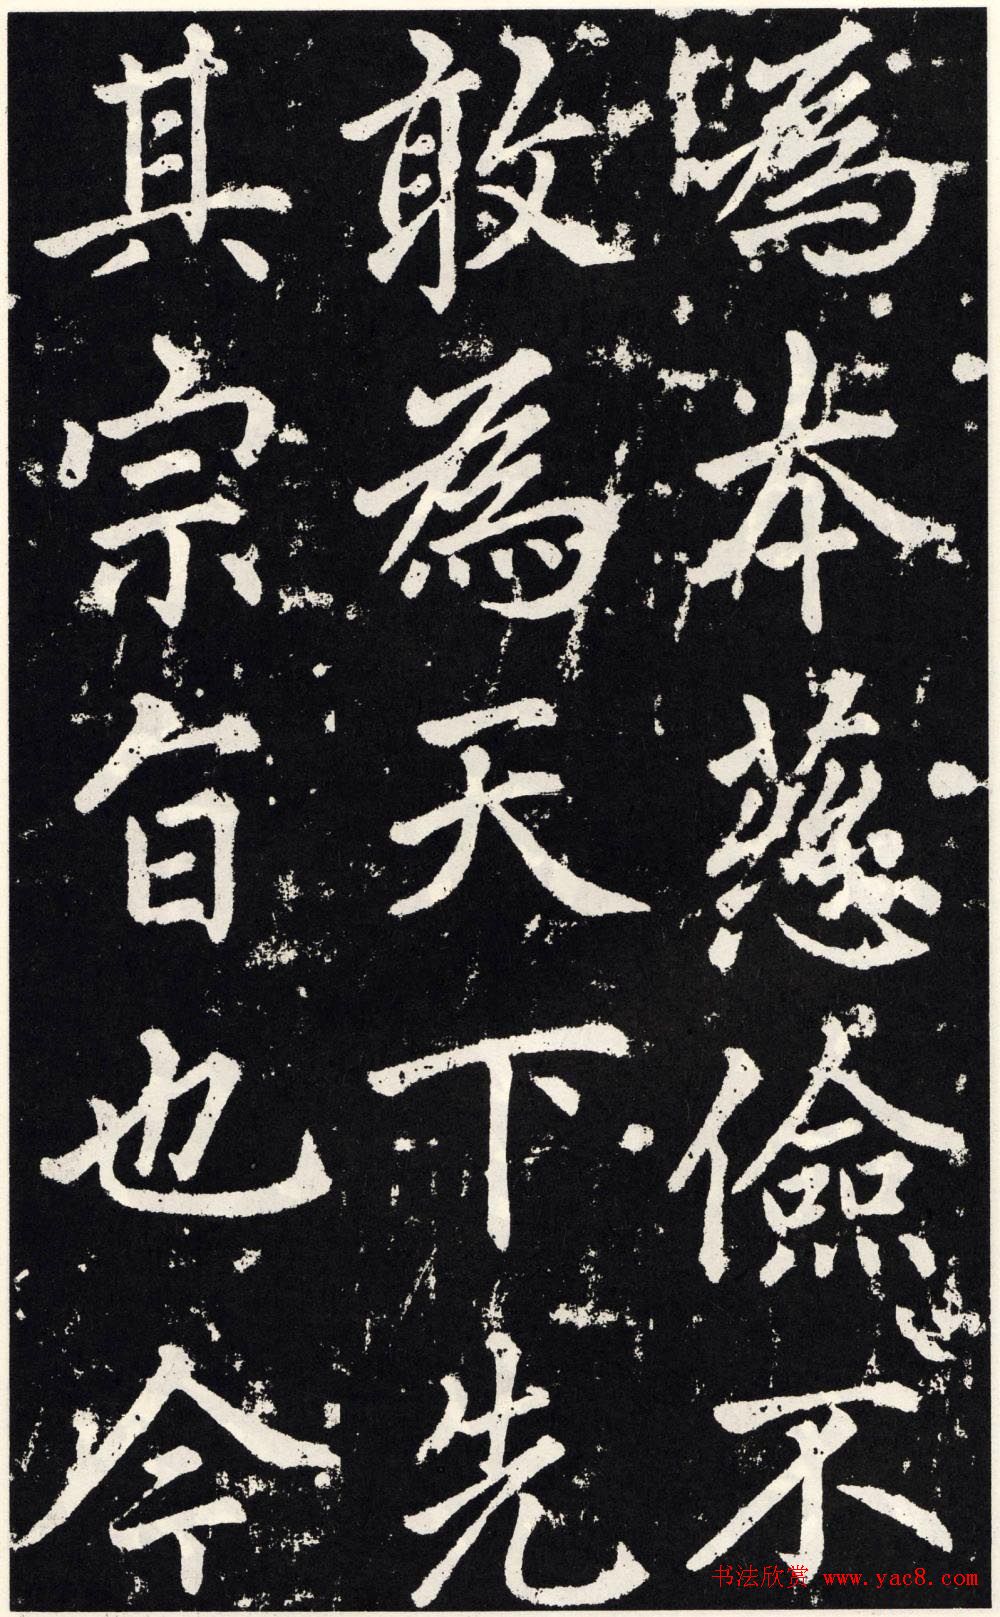 為本慈儉不
敢為天下先
其宗旨也今
书法欣赏 www.yac8.com